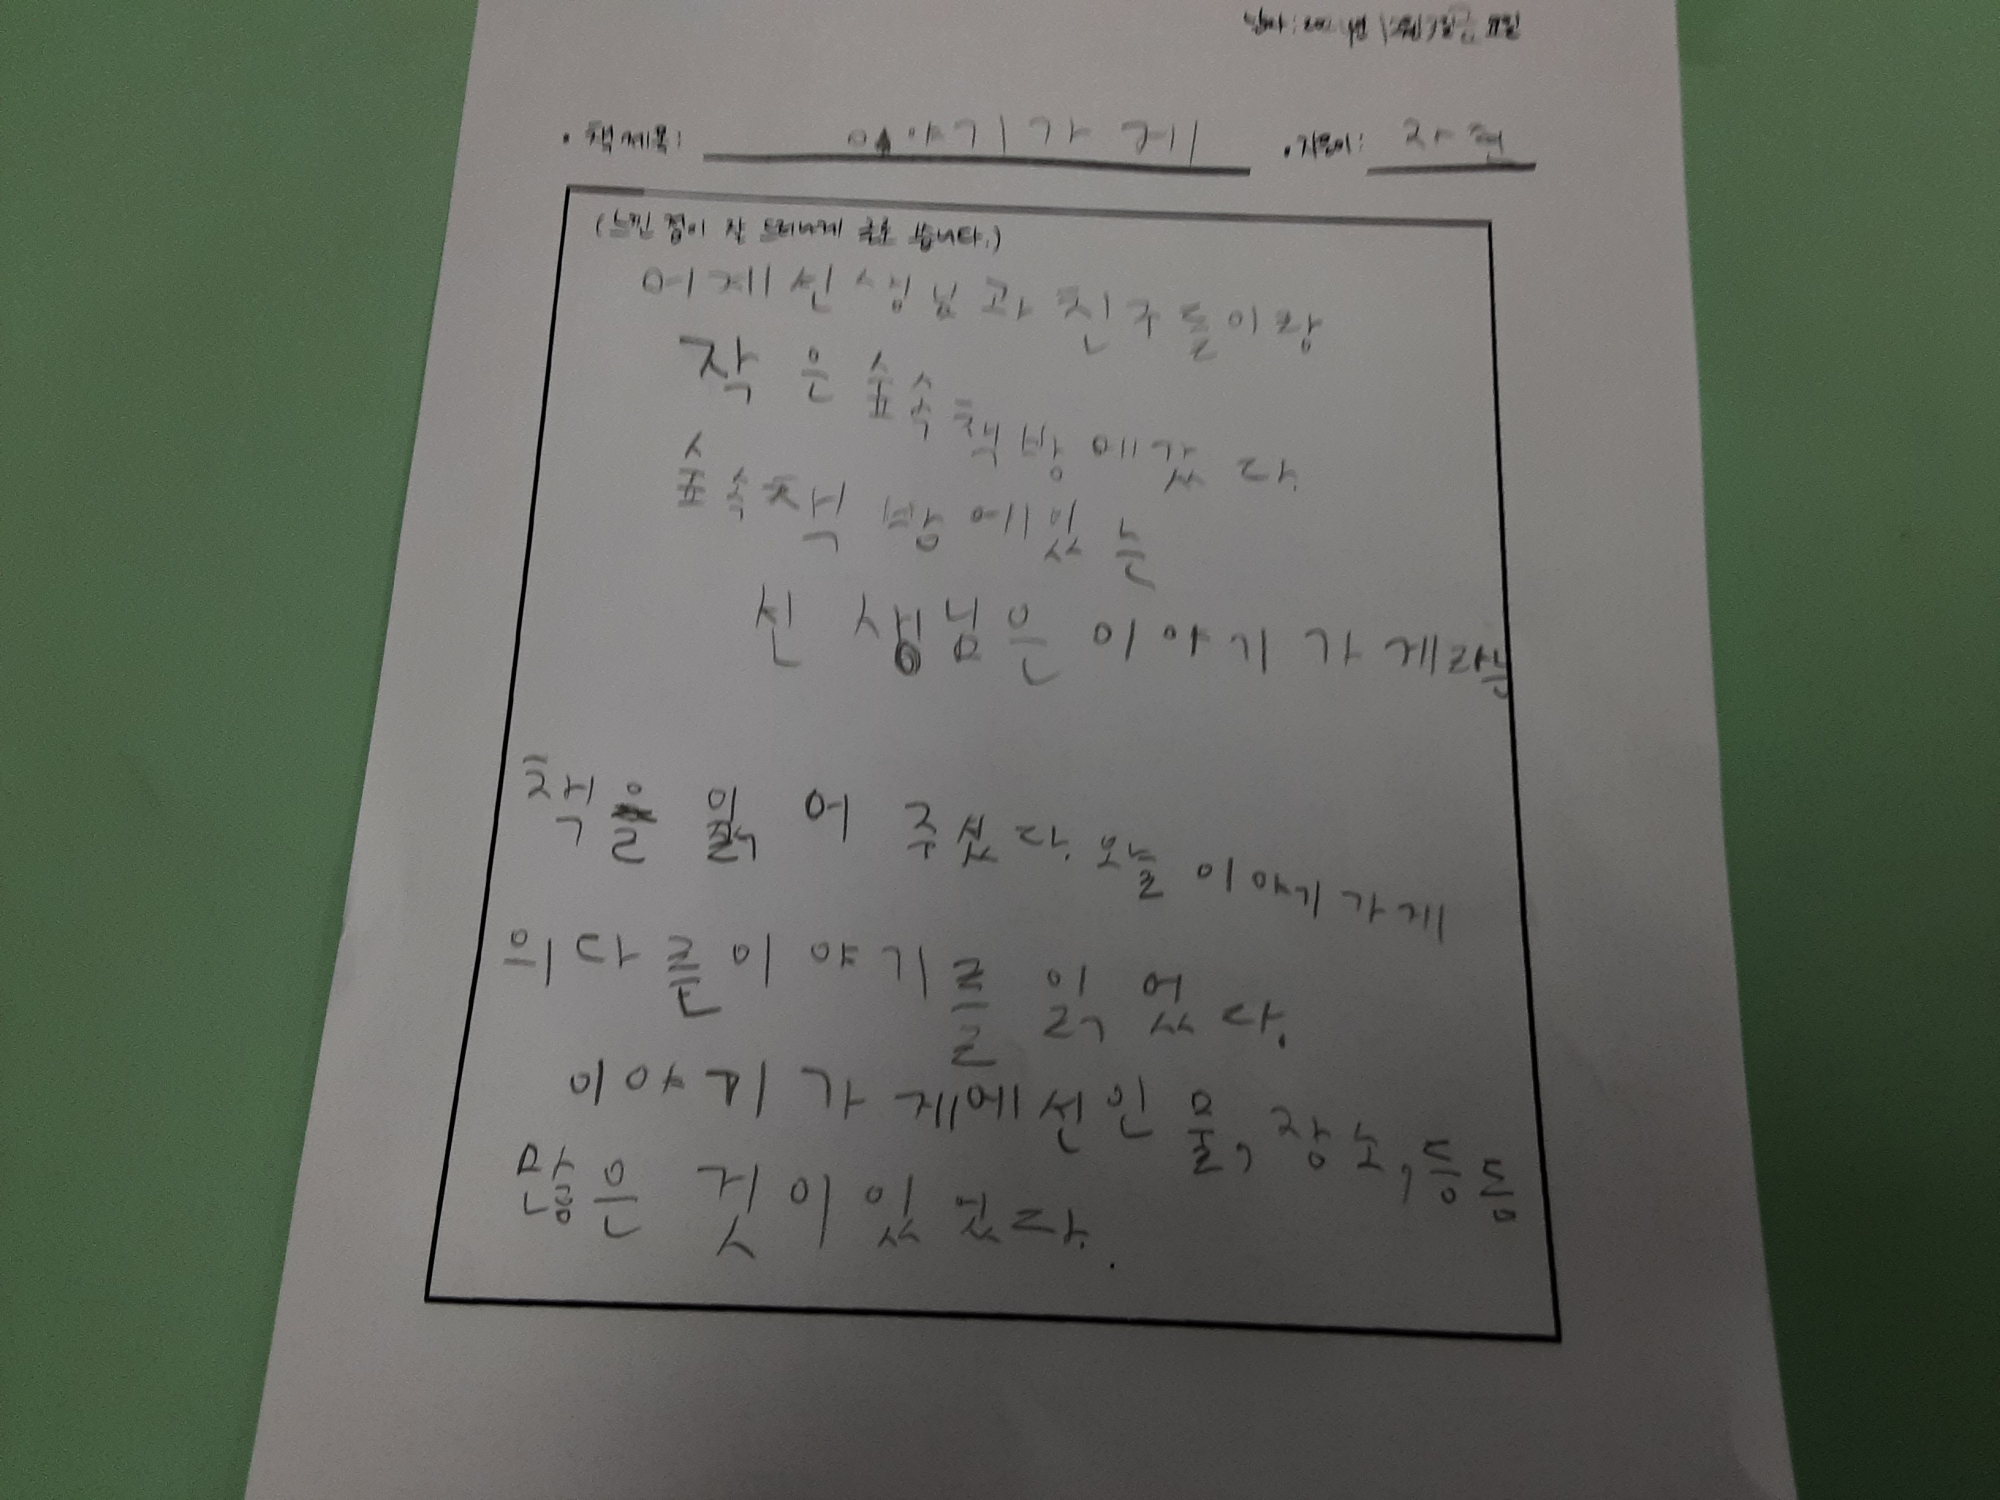 • 책제목: 이야기가게 • 지은이: 자현
(느낀 점이 잘 드러나게 글로 씁니다.)
어제선생님과친구들이랑
작은숲속책방에갔다.
숲속책방에있는
선생님은이야기가게라는
책을 읽어 주셨다. 오늘 이야기가게
의다른이야기를 읽었다.
이야기가게에선인물, 장소, 등등
많은 것이있었다.